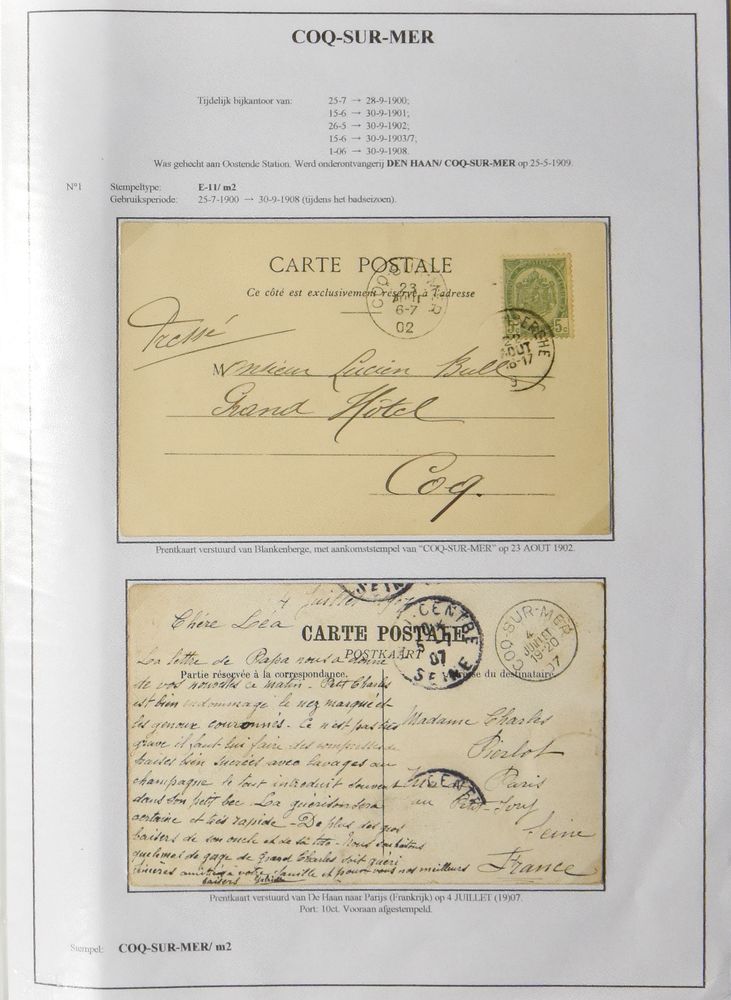 COQ-SUR-MER
Tijdelijk bijkantoor van: 25-7 → 28-9-1900;
15-6 → 30-9-1901;
26-5 → 30-9-1902;
15-6 → 30-9-1903/7;
1-06 → 30-9-1908.
Was gehecht aan Oostende Station. Werd onderontvangerij DEN HAAN/ COQ-SUR-MER op 25-5-1909.
N°1 Stempeltype: E-11/ m2
Gebruiksperiode: 25-7-1900 → 30-9-1908 (tijdens het badseizoen).
CARTE POSTALE
Ce côté est exclusivement réservé à l'adresse
COQ-SUR-MER
23
AOUT
6-7
02
5c 5c
AOUT
Pressé
Monsieur Lucien Bull
Grand Hôtel
Coq.
Prentkaart verstuurd van Blankenberge, met aankomststempel van “COQ-SUR-MER” op 23 AOUT 1902.
4 Juillet
SEINE
Chère Léa
CARTE POSTALE
POSTKAART
Partie réservée à la correspondance. du destinataire
CENTRE
07
SEINE
COQ-SUR-MER
4
JUILLET
19-20
07
La lettre de Papa nous a donné
de vos nouvelles ce matin. Petit Charles
est bien endommagé le nez marqué et
les genoux couronnés. Ce n'est pas très
grave il faut lui faire des compresses
fraises bien sucrées avec lavages au
champagne le tout introduit souvent
dans son petit bec. La guérison sera
certaine et très rapide - De plus des gros
baisers de son oncle et de sa tite. Nous souhaitons
que le mal de gage de Grand Charles soit guéri
à votre famille et pour vous nos meilleurs
baisers
Madame Charles
Pierlot
Paris
au
Seine
France
CENTR
Prentkaart verstuurd van De Haan naar Parijs (Frankrijk) op 4 JUILLET (19)07.
Port: 10ct. Vooraan afgestempeld.
Stempel: COQ-SUR-MER/ m2